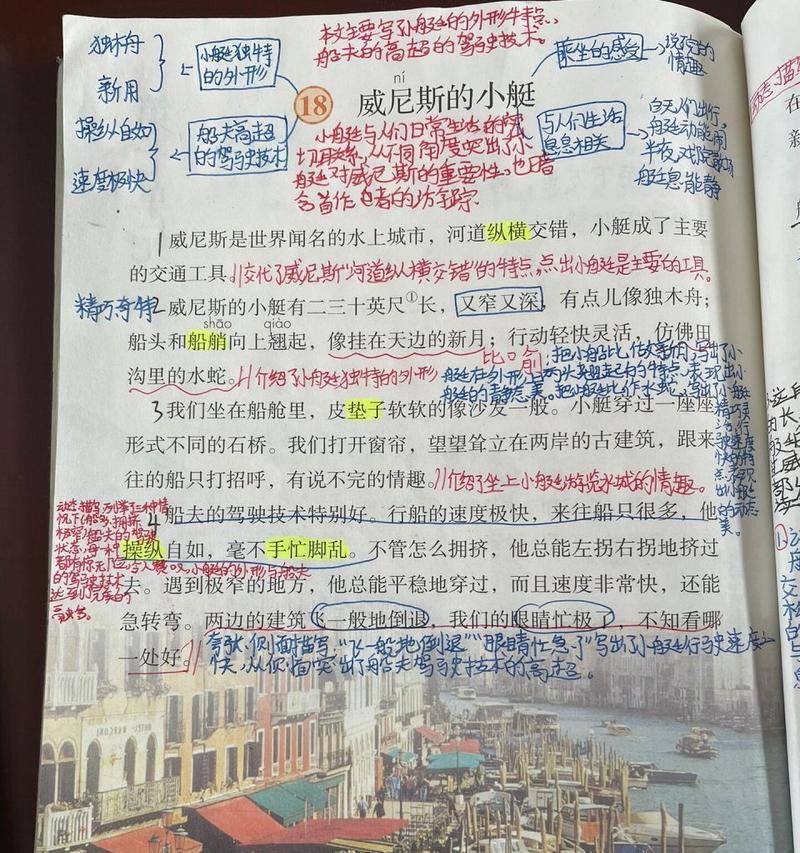 本文主要写了小艇的外形特点,
船夫的高超的驾驶技术。
独木舟
新月
操纵自如
速度极快
小艇独特
的外形
船夫高超
的驾驶技术
乘坐的感受
说不完的
情趣
与人们生活
息息相关
白天人们出行,
船艇动能闹
半夜戏院散场
艇息能静
ní
18 威尼斯的小艇
小艇与人们日常生活的密
切关系,从不同角度突出了小
艇对威尼斯的重要性。也
1威尼斯是世界闻名的水上城市,河道纵横交错,小艇成了主要
的交通工具。//交代了威尼斯“河道纵横交错”的特点,点出小艇是主要的工具。
精巧奇特
2威尼斯的小艇有二三十英尺①长,又窄又深,有点儿像独木舟;
shāo qiào
船头和船艄向上翘起,像挂在天边的新月;行动轻快灵活,仿佛田
沟里的水蛇。//介绍了小艇独特的外形
比喻:把小艇比作新月,写出了小
艇在外形上两头翘起的特点,表现出小
艇的静态美。把小艇比作水蛇,写出了小艇
3我们坐在船舱里,皮垫子软软的像沙发一般。小艇穿过一座座
形式不同的石桥。我们打开窗帘,望望耸立在两岸的古建筑,跟来
往的船只打招呼,有说不完的情趣。//介绍了坐上小艇游览水城的情趣。
4船夫的驾驶技术特别好。行船的速度极快,来往船只很多,他
操纵自如,毫不手忙脚乱。不管怎么拥挤,他总能左拐右拐地挤过
去。遇到极窄的地方,他总能平稳地穿过,而且速度非常快,还能
急转弯。两边的建筑飞一般地倒退,我们的眼睛忙极了,不知看哪
一处好。//
夸张、侧面描写,“飞一般地倒退”“眼睛忙极了”写出了小艇行驶速度之
快,从侧面突出了船夫驾驶技术的高超。